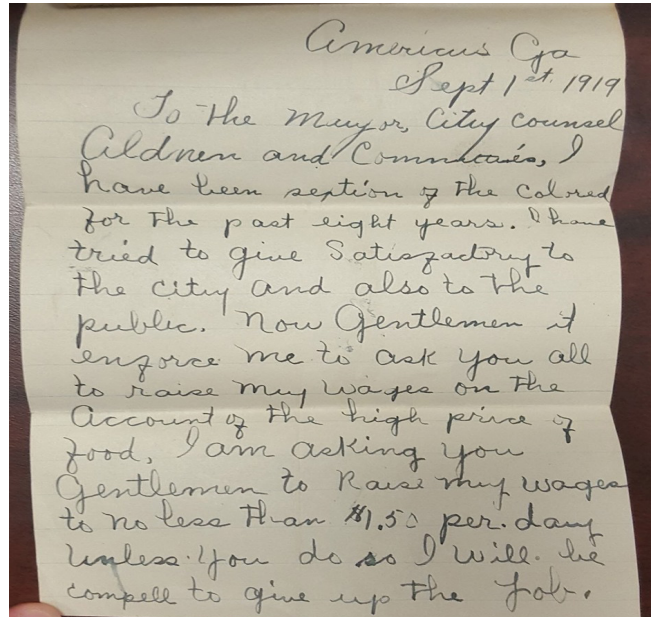 Americus Ga
Sept 1st. 1919
To the Muyor, City counsel
Aldnen and Commitaies, I
have been seption of the colored
for the past eight years. I have
tried to give Satisfactory to
the city and also to the
public. Now Gentlemen it
enforce me to ask you all
to raise muy wages on the
Account of the high price of
food, I am asking you
Gentlemen to Raise my wages
to no less than $1.50 per. day
Unless. you do so I will. be
compell to give up the Job.